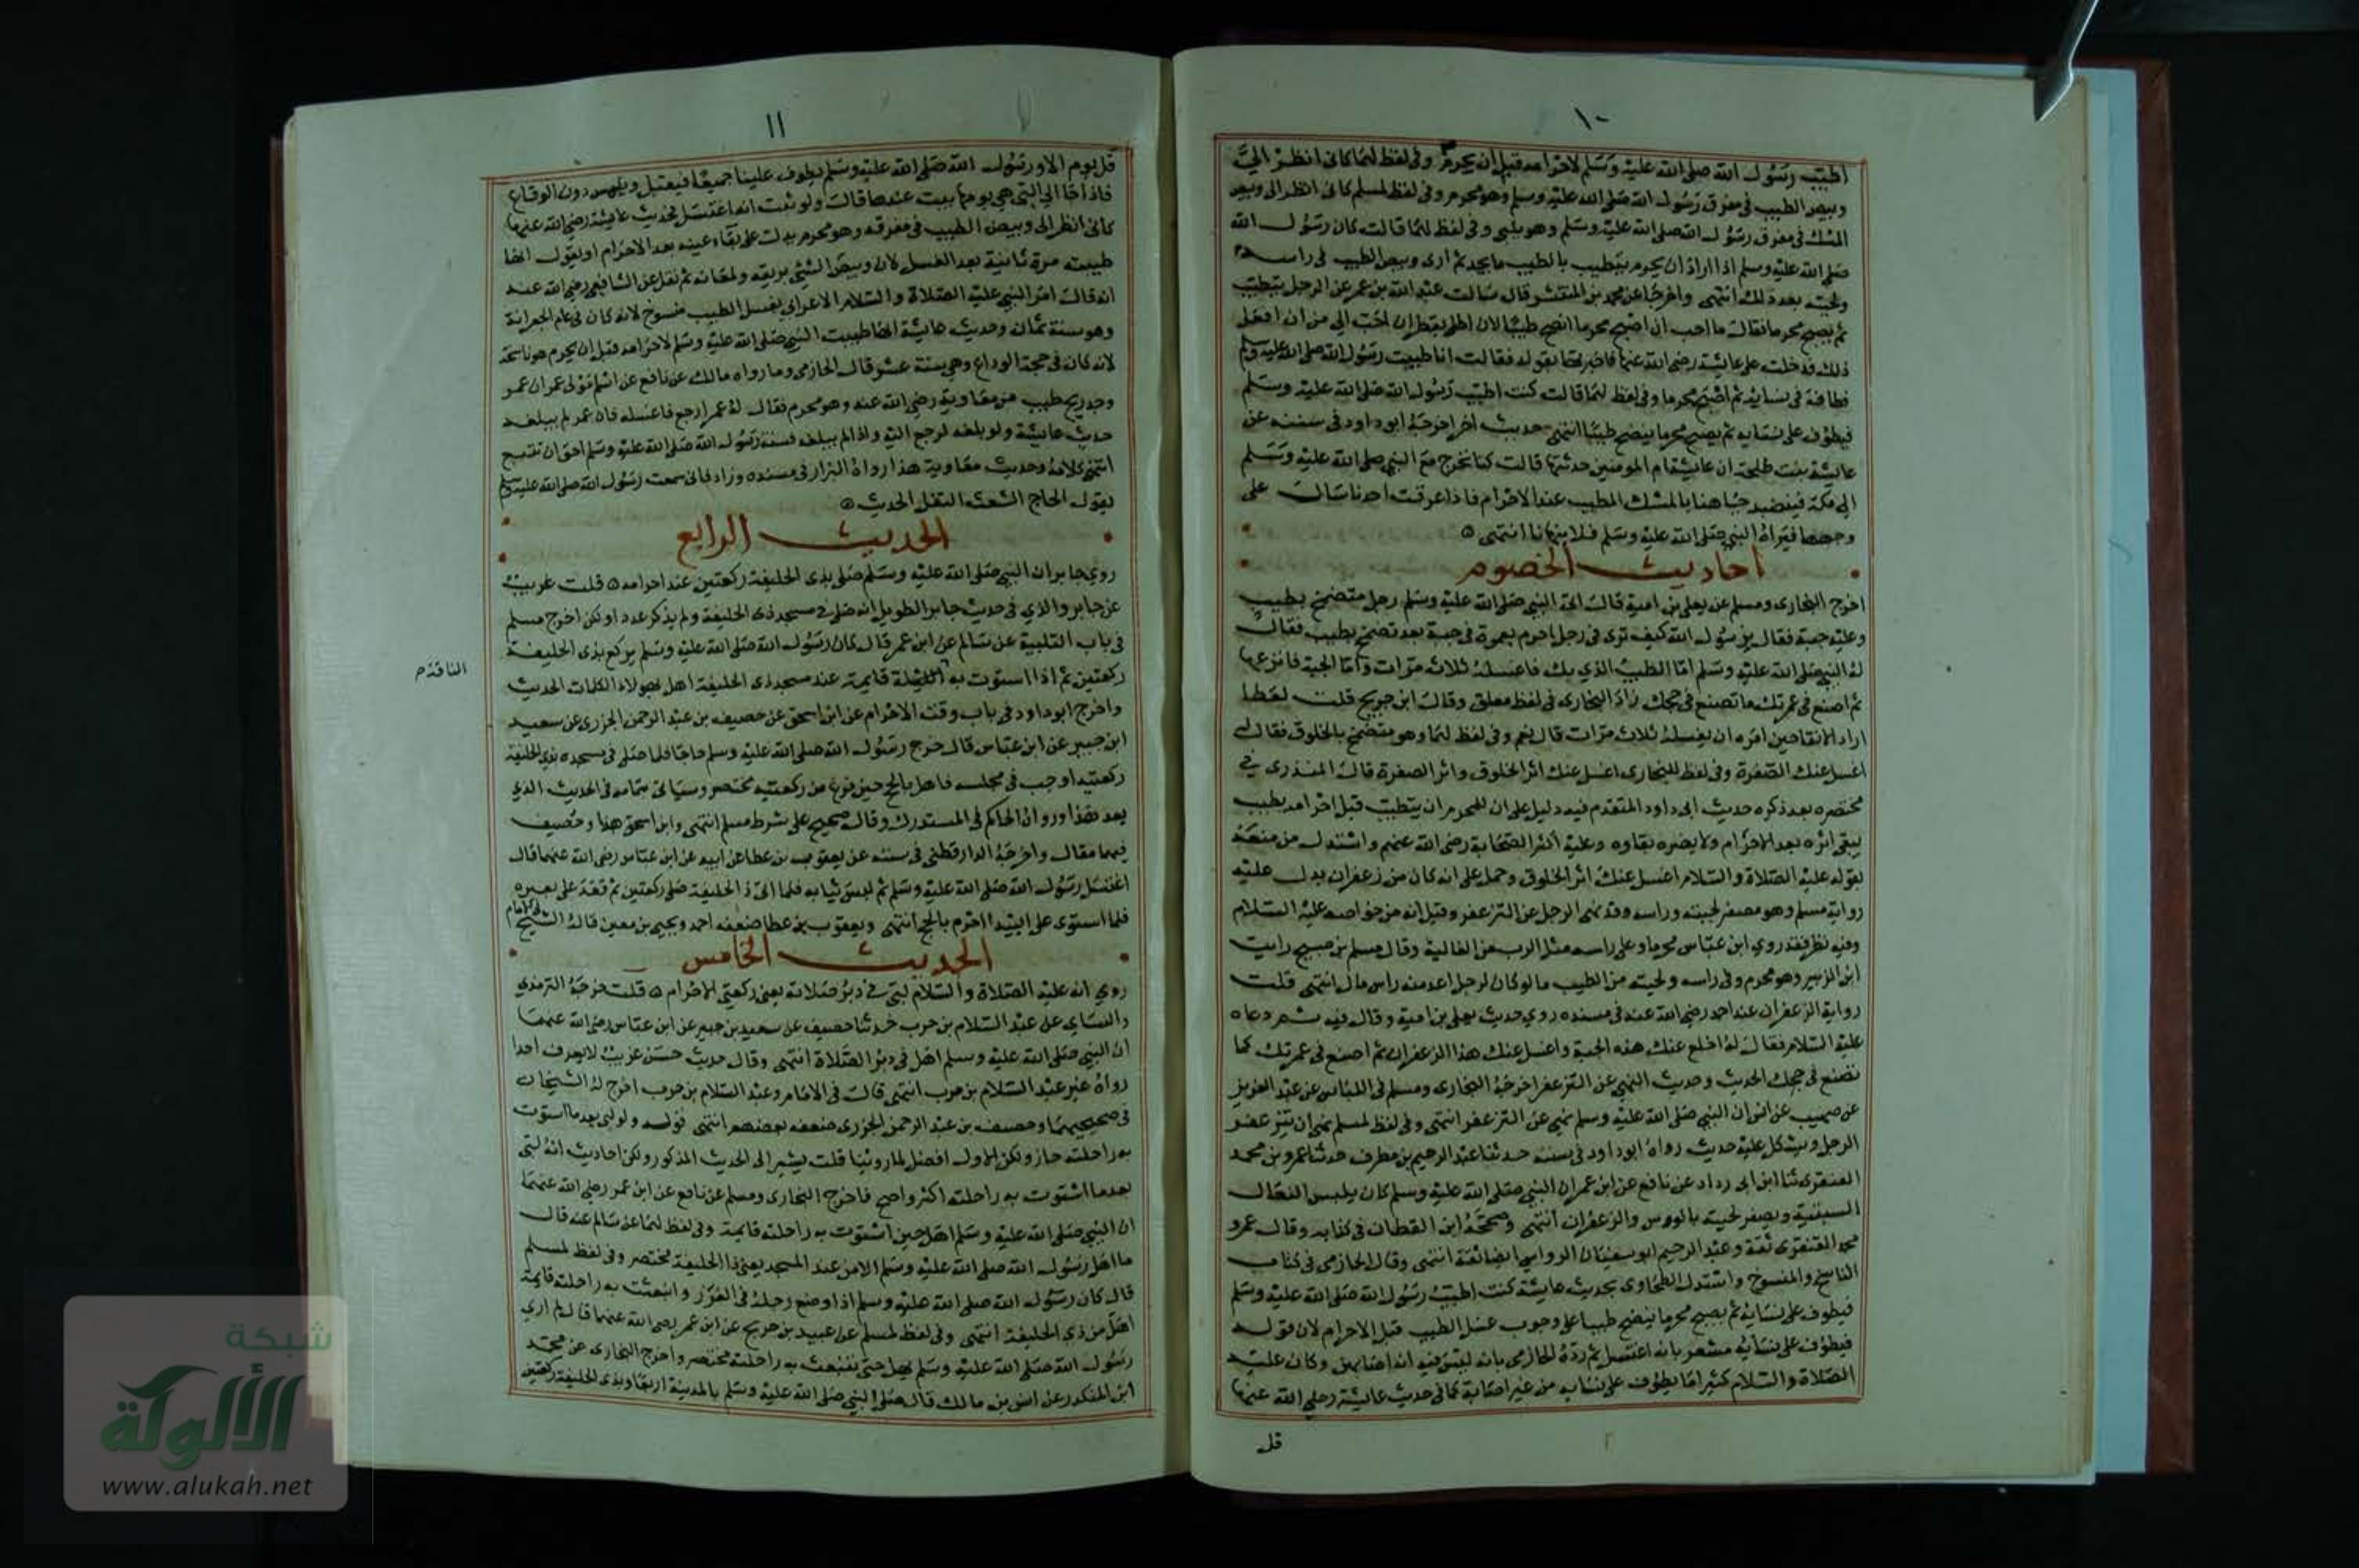 ١٠
اطيب رسول الله صلى الله عليه وسلم لاحرامه قبل ان يحرم وفى لفظ لهما كانى انظر الى
وبيص الطيب فى مفرق رسول الله صلى الله عليه وسلم وهو محرم وفى لفظ لمسلم كانى انظر الى وبيص
المسك فى مفرق رسول الله صلى الله عليه وسلم وهو يلبى وفى لفظ لهما قالت كان رسول الله
صلى الله عليه وسلم اذا اراد ان يحرم يتطيب بالطيب ما يجد ثم ارى وبيص الطيب فى راسه
ولحيته بعد ذلك انتهى واخرجا عن محمد بن المنتشر قال سالت عبد الله بن عمر عن الرجل يتطيب
ثم يصبح محرما فقال ما احب ان اصبح محرما انضح طيبا لان اطلى بقطران احب الى من ان افعل
ذلك فدخلت على عايشة رضى الله عنها فاخبرتها بقوله فقالت انا طيبت رسول الله صلى الله عليه وسلم
فطاف فى نسايه ثم اصبح محرما وفى لفظ لهما قالت كنت اطيب رسول الله صلى الله عليه وسلم
فيطوف على نسايه ثم يصبح محرما ينضح طيبا انتهى حديث اخر اخرجه ابو داود فى سننه عن
عايشة بنت طلحة ان عايشة ام المومنين حدثتها قالت كنا نخرج مع النبي صلى الله عليه وسلم
الى مكة فنضمد جباهنا بالمسك المطيب عند الاحرام فاذا عرقت احدنا سال على
وجهها فيراه النبي صلى الله عليه وسلم فلا ينهانا انتهى
احاديث الخصوم
اخرج البخارى ومسلم عن يعلى بن امية قال اتى النبي صلى الله عليه وسلم رجل متضمخ بطيب
وعليه جبة فقال يرسول الله كيف ترى فى رجل احرم بعمرة فى جبة بعد تضمخ بطيب فقال
له النبي صلى الله عليه وسلم اما الطيب الذي بك فاغسله ثلاث مرات واما الجبة فانزعها
ثم اصنع فى عمرتك ما تصنع فى حجك زاد البخارى فى لفظ معلق وقال ابن جريج قلت لعطا
اراد الانقا حين امره ان يغسله ثلاث مرات قال نعم وفى لفظ لهما وهو متضمخ بالخلوق فقال له
اغسل عنك الصفرة وفى لفظ للبخارى اغسل عنك اثر الخلوق واثر الصفرة قال المنذرى فى
مختصره بعد ذكره حديث ابى داود المتقدم فيه دليل على ان للمحرم ان يتطيب قبل احرامه بطيب
يبقى اثره بعد الاحرام ولا يضره بقاوه وعليه اكثر الصحابة رضى الله عنهم واستدل من منعه
بقوله عليه الصلاة والسلام اغسل عنك اثر الخلوق وحمل على انه كان من زعفران يدل عليه
رواية مسلم وهو مصفر لحيته وراسه وقد نهى الرجل عن التزعفر وقيل انه من خواصه عليه السلام
وفيه نظر فقد روي ابن عباس محرما وعلى راسه مثل الرب من الغالية وقال مسلم بن صبيح رايت
ابن الزبير وهو محرم وفى راسه ولحيته من الطيب ما لو كان لرجل اعد منه راس مال انتهى قلت
رواية الزعفران عند احمد رضى الله عنه فى مسنده روي حديث يعلى بن امية وقال فيه ثم دعاه
عليه السلام فقال له اخلع عنك هذه الجبة واغسل عنك هذا الزعفران ثم اصنع فى عمرتك كما
تصنع فى حجك الحديث وحديث النهى عن التزعفر اخرجه البخارى ومسلم فى اللباس عن عبد العزيز
عن صهيب عن انس ان النبي صلى الله عليه وسلم نهى عن التزعفر انتهى وفى لفظ لمسلم نهى ان يتزعفر
الرجل ويشكل عليه حديث رواه ابو داود فى سننه حدثنا عبد الرحيم بن مطرف حدثنا عمرو بن محمد
العنقزى ثنا ابن ابى رداد عن نافع عن ابن عمر ان النبي صلى الله عليه وسلم كان يلبس النعال
السبتية ويصفر لحيته بالورس والزعفران انتهى وصححه ابن القطان فى كتابه وقال عمرو
محمد العنقزى ثقة وعبد الرحيم ابو سفيان الرواسى ايضا ثقة انتهى وقال الحازمى فى كتاب
الناسخ والمنسوخ واستدل الطحاوى بحديث عايشة كنت اطيب رسول الله صلى الله عليه وسلم
فيطوف على نسايه ثم يصبح محرما ينضح طيبا على وجوب غسل الطيب قبل الاحرام لان قوله
فيطوف على نسايه مشعر بانه اغتسل ثم رده الحازمى بانه ليس فيه انه اصابهن وكان عليه
الصلاة والسلام كثيرا ما يطوف على نسايه من غير اصابة كما فى حديث عايشة رضى الله عنها
قل
١١
قل يوم الا ورسول الله صلى الله عليه وسلم يطوف علينا جميعا فيقبل ويلمس دون الوقاع
فاذا جا الى التى هى يومها يبيت عندها قالت ولو ثبت انه اغتسل فحديث عايشة رضى الله عنها
كانى انظر الى وبيص الطيب فى مفرقه وهو محرم يدل على بقاء عينه بعد الاحرام او يقول انها
طيبته مرة ثانية بعد الغسل لان وبيص الشئ بريقه ولمعانه ثم نقل عن الشافعى رضى الله عنه
انه قال امر النبي عليه الصلاة والسلام الاعرابى بغسل الطيب منسوخ لانه كان فى عام الجعرانة
وهو سنة ثمان وحديث عايشة انها طيبت النبي صلى الله عليه وسلم لاحرامه قبل ان يحرم هو ناسخه
لانه كان فى حجة الوداع وهى سنة عشر قال الحازمى وما رواه مالك عن نافع عن اسلم مولى عمر ان عمر
وجد ريح طيب من معاوية رضى الله عنه وهو محرم فقال له عمر ارجع فاغسله فان عمر لم يبلغه
حديث عايشة ولو بلغه لرجع اليه واذا لم يبلغه فسنة رسول الله صلى الله عليه وسلم احق ان تتبع
انتهى كلامه وحديث معاوية هذا رواه البزار فى مسنده وزاد فانى سمعت رسول الله صلى الله عليه وسلم
يقول الحاج الشعث التفل الحديث
الحديث الرابع
روي جابر ان النبي صلى الله عليه وسلم صلى بذى الحليفة ركعتين عند احرامه قلت غريب
عن جابر والذي فى حديث جابر الطويل انه صلى فى مسجد ذى الحليفة ولم يذكر عددا ولكن اخرج مسلم
فى باب التلبية عن سالم عن ابن عمر قال كان رسول الله صلى الله عليه وسلم يركع بذى الحليفة
ركعتين ثم اذا استوت به قايمة عند مسجد ذى الحليفة اهل بهولاء الكلمات الحديث
الناقة م
واخرج ابو داود فى باب وقت الاحرام عن ابن اسحق عن خصيف بن عبد الرحمن الجزرى عن سعيد
ابن جبير عن ابن عباس قال خرج رسول الله صلى الله عليه وسلم حاجا فلما صلى فى مسجده بذى الحليفة
ركعتيه اوجب فى مجلسه فاهل بالحج حين فرغ من ركعتيه مختصر وسياتى بتمامه فى الحديث الذي
بعد هذا ورواه الحاكم فى المستدرك وقال صحيح على شرط مسلم انتهى وابن اسحق هذا وخصيف
فيهما مقال واخرجه الدارقطنى فى سننه عن يعقوب بن عطا عن ابيه عن ابن عباس رضى الله عنهما قال
اغتسل رسول الله صلى الله عليه وسلم ثم لبس ثيابه فلما اتى ذا الحليفة صلى ركعتين ثم قعد على بعيره
فلما استوى على البيداء احرم بالحج انتهى ويعقوب بن عطا ضعفه احمد ويحيى بن معين قاله الشيخ فى الامام
الحديث الخامس
روي انه عليه الصلاة والسلام لبى فى دبر صلاته يعنى ركعتى الاحرام قلت خرجه الترمذي
والنساي عن عبد السلام بن حرب حدثنا خصيف عن سعيد بن جبير عن ابن عباس رضى الله عنهما
ان النبي صلى الله عليه وسلم اهل فى دبر الصلاة انتهى وقال حديث حسن غريب لا يعرف احدا
رواه غير عبد السلام بن حرب انتهى قال فى الامام وعبد السلام بن حرب اخرج له الشيخان
فى صحيحيهما وخصيف بن عبد الرحمن الجزرى ضعفه بعضهم انتهى قوله ولو لبى بعد ما استوت
به راحلته جاز ولكن الاول افضل لما روينا قلت يشير الى الحديث المذكور ولكن احاديث انه لبى
بعد ما استوت به راحلته اكثر واصح فاخرج البخارى ومسلم عن نافع عن ابن عمر رضى الله عنهما
ان النبي صلى الله عليه وسلم اهل حين استوت به راحلته قايمة وفى لفظ لهما عن سالم عنه قال
ما اهل رسول الله صلى الله عليه وسلم الا من عند المسجد يعنى ذا الحليفة مختصر وفى لفظ لمسلم
قال كان رسول الله صلى الله عليه وسلم اذا وضع رجله فى الغرز وانبعثت به راحلته قايمة
اهل من ذي الحليفة انتهى وفى لفظ لمسلم عن عبيد بن جريج عن ابن عمر رضى الله عنهما قال لم ارى
رسول الله صلى الله عليه وسلم يهل حتى تنبعث به راحلته مختصر واخرج البخارى عن محمد
ابن المنكدر عن انس بن مالك قال صلى النبي صلى الله عليه وسلم بالمدينة اربعا وبذى الحليفة ركعتين
شبكة
الألوكة
www.alukah.net